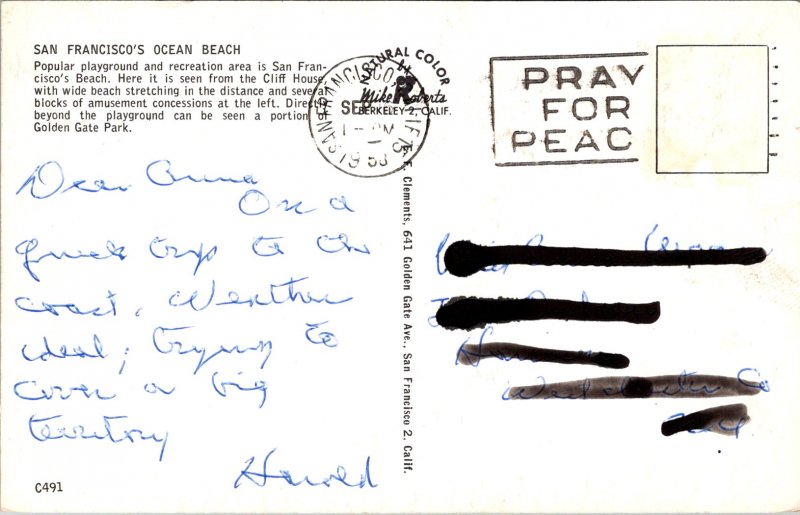 SAN FRANCISCO'S OCEAN BEACH
Popular playground and recreation area is San Fran-
cisco's Beach. Here it is seen from the Cliff House
with wide beach stretching in the distance and several
blocks of amusement concessions at the left. Directly
beyond the playground can be seen a portion
Golden Gate Park.
NATURAL COLOR
Mike Roberts
BERKELEY 2, CALIF.
SAN FRANCISCO, CALIF
SEP
PM
PRAY
FOR
PEAC
Dear Anna
On a
quick trip to the
coast. Weather
ideal; trying to
cover a big
territory
Harold
Clements, 641 Golden Gate Ave., San Francisco 2, Calif.
Westchester Co
C491